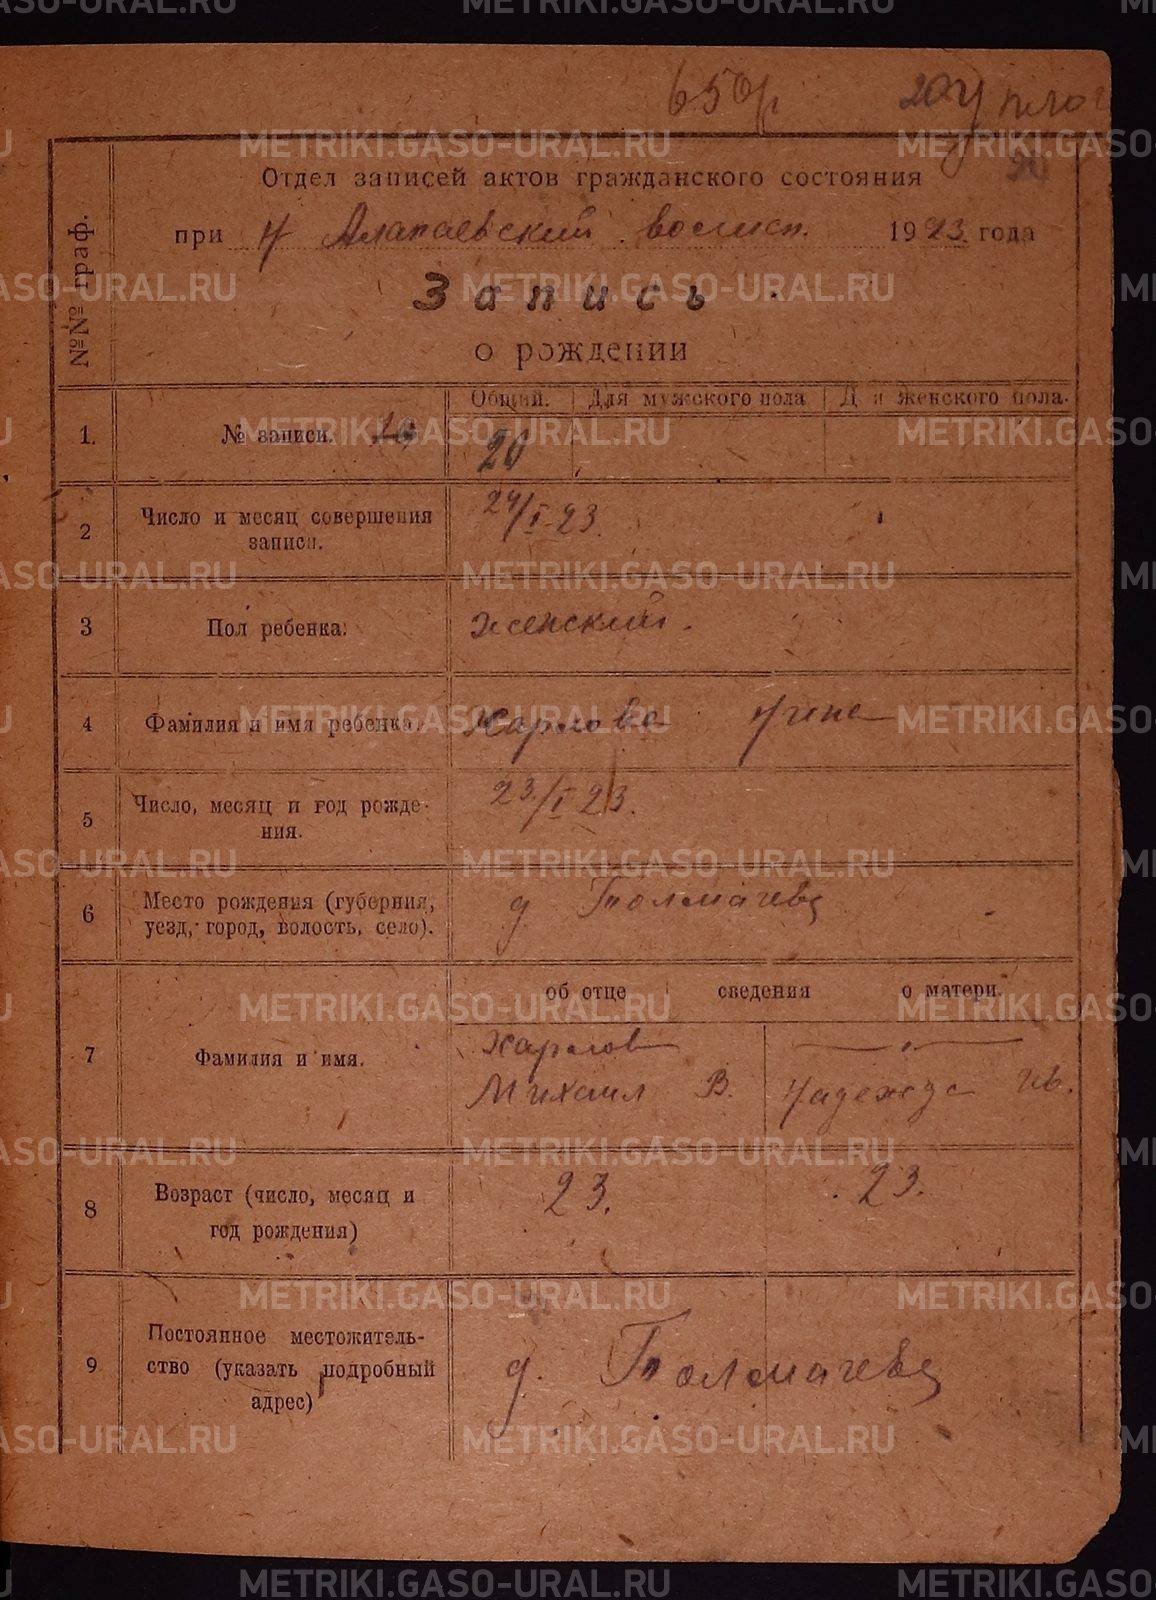 650р
Отдел записей актов гражданского состояния
при Н Алапаевский волисп. 1923 года
Запись
о рождении
№№ граф.
Общий. Для мужского пола Для женского пола.
1. № записи. 20
2 Число и месяц совершения
записи.
24/I-23.
3 Пол ребенка. женский.
4 Фамилия и имя ребенка. Харлова
5 Число, месяц и год рожде-
ния.
23/I 23.
6 Место рождения (губерния,
уезд, город, волость, село).
д Толмачева
об отце сведения о матери.
7 Фамилия и имя.
Харлов — „ —
Михаил В. Надежда Ив.
8 Возраст (число, месяц и
год рождения)
23. 23.
9 Постоянное местожитель-
ство (указать подробный
адрес)
д. Толмачева
METRIKI.GASO-URAL.RU